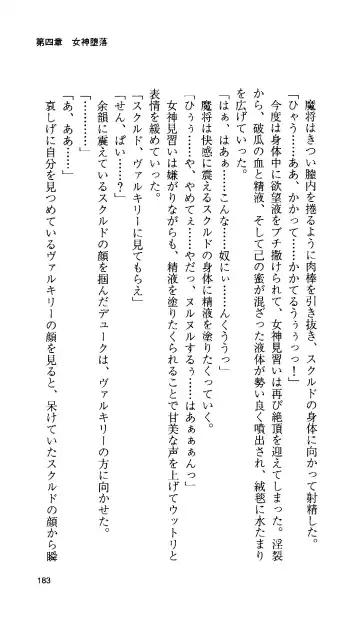 第四章 女神堕落
魔将はきつい膣内を捲るように肉棒を引き抜き、スクルドの身体に向かって射精した。
「ひゃう……ああ、かかって……かかてるうぅぅっっ!」
今度は身体中に欲望液をブチ撒けられて、女神見習いは再び絶頂を迎えてしまった。淫裂
から、破瓜の血と精液、そして己の蜜が混ざった液体が勢い良く噴出され、絨毯に水たまり
を広げていった。
「はぁ、はあぁ……こんな……奴にぃ……んくううっ」
魔将は快感に震えるスクルドの身体に精液を塗りたくっていく。
「ひぅぅ……や、やめてぇ……やだっ、ヌルヌルするぅ……はあぁぁぁんっ」
女神見習いは嫌がりながらも、精液を塗りたくられることで甘美な声を上げてウットリと
表情を緩めていった。
「スクルド、ヴァルキリーに見てもらえ」
「せん、ぱい……?」
余韻に震えているスクルドの顔を掴んだデュークは、ヴァルキリーの方に向かせた。
「…………」
「あ、ああ……」
哀しげに自分を見つめているヴァルキリーの顔を見ると、呆けていたスクルドの顔から瞬
183